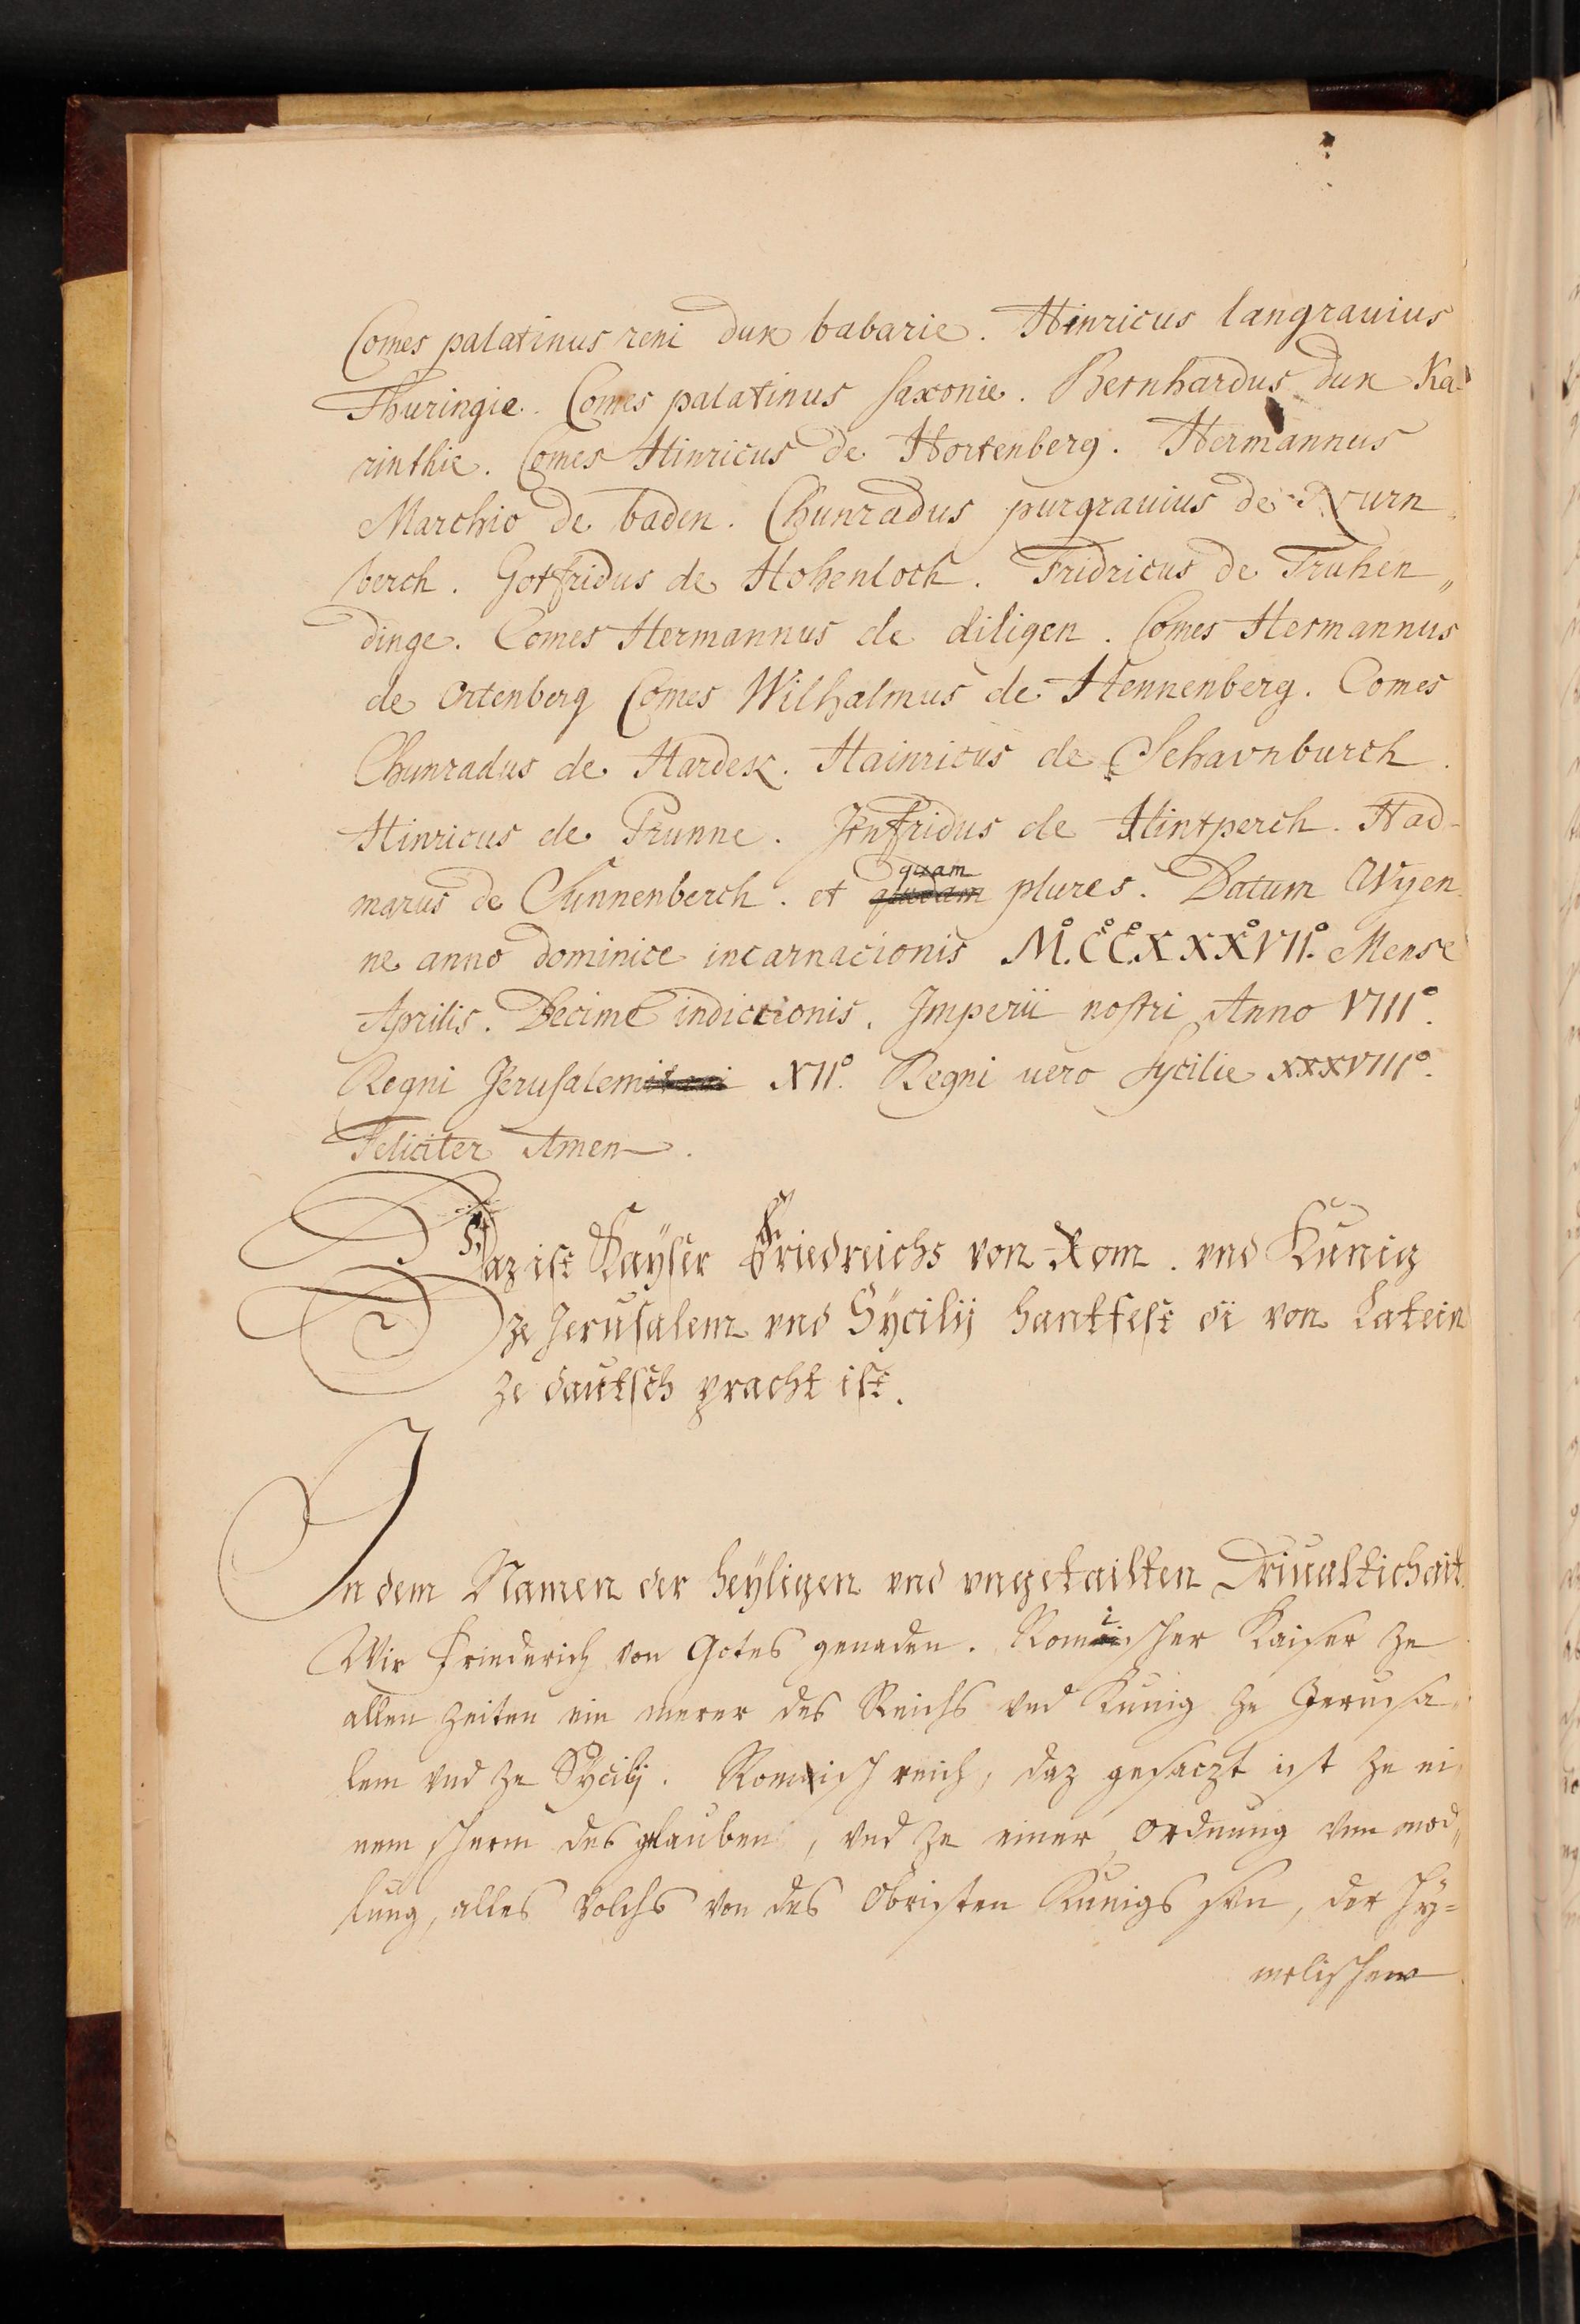 Comes palatinus reni dux babarie. Hinricus langrauius
Thuringie. Comes palatinus saxonie. Bernhardus dux Ka-
rinthie. Comes Hinricus de Hortenberg. Hermannus
Marchio de baden. Chunradus purgrauius de Nurn
berch. Gotfridus de Hohenloch. Fridricus de Truhen„
dinge. Comes Hermannus de diligen. Comes Hermannus
de Ortenberg Comes Wilhalmus de Hennenberg. Comes
Chunradus de Hardek. Hainricus de Schavnburch.
Hinricus de Prunne. Irnfridus de Hintperch. Had-
marus de Chunnenberch. et quam plures. Datum Wyen
ne anno dominice incarnacionis M.CC.XXXVII. Mense
Aprilis. Decime indiccionis. Imperii nostri Anno VIII°.
Regni Jerusalem XII°. Regni uero Sycilie XXXVIII°.
Feliciter Amen.
Daz ist Kayser Friedreichs von Rom. vnd Kunig
ze Jerusalem vnd Sÿcilij hantfest di von Latein
ze dautsch pracht ist.
In dem Namen der heyligen vnd vngetailten Driualtichait
Wir Friederich von Gotes genaden. Romischer Kaiser ze
allen Zeiten ein merer des Reichs vnd Kunig ze Jerusa„
lem vnd ze Sÿcilij. Romisch reich, daz gesaczt ist ze ei„
nem scherm des glauben, vnd ze einer ordnung vnn
lung, alles volchs von des obristen Kunigs svn, der hy=
melischem